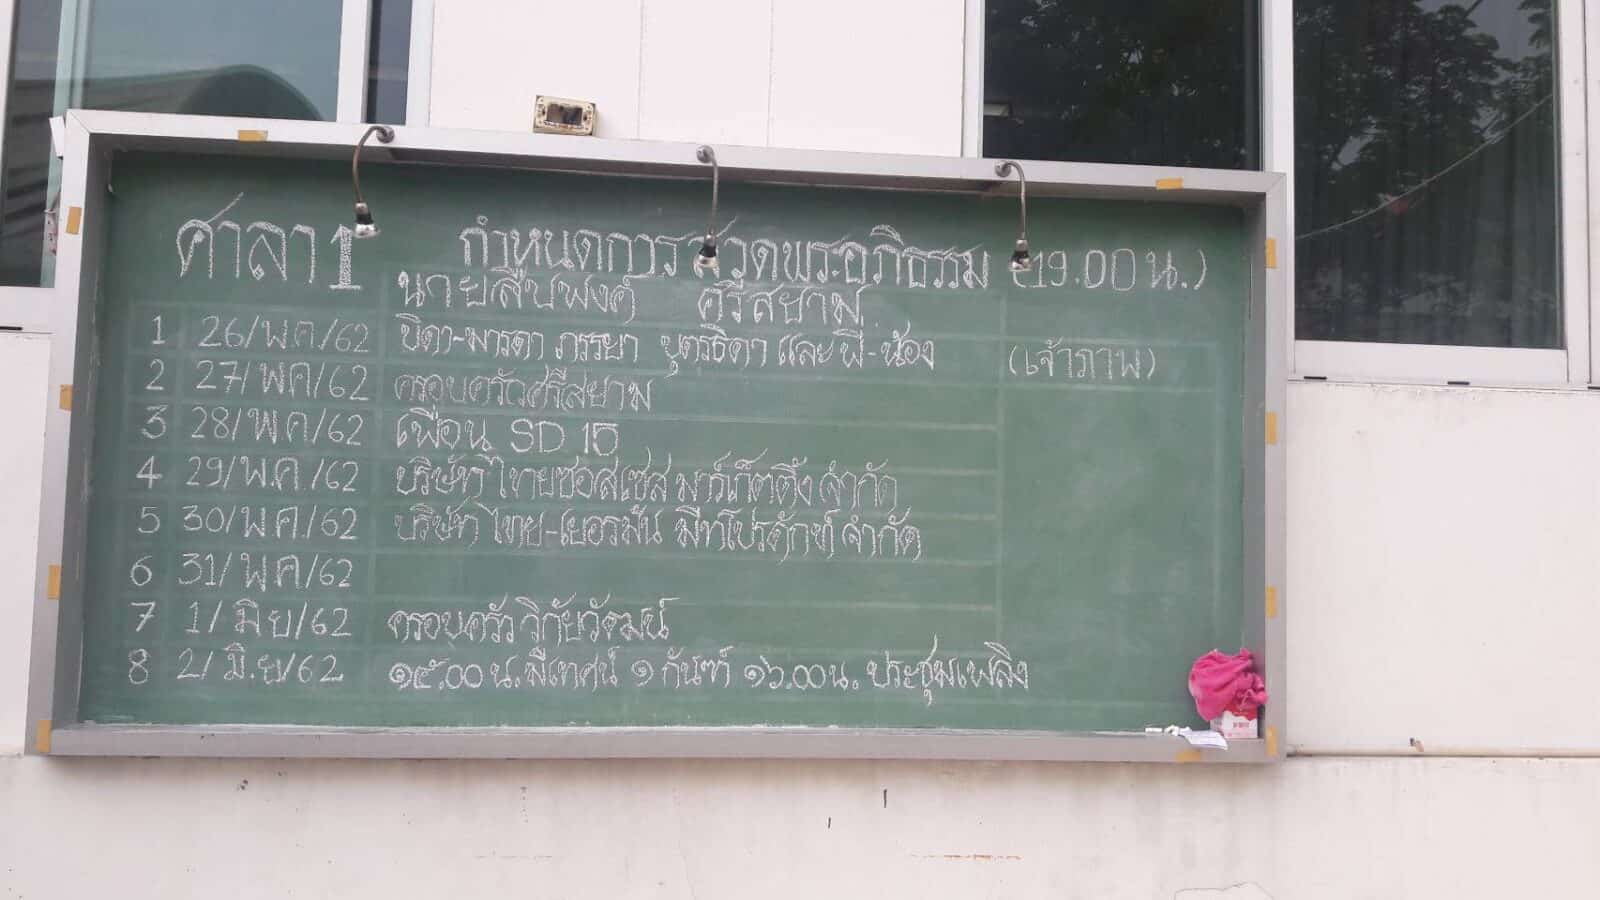 ศาลา 1 กำหนดการสวดพระอภิธรรม (19.00 น.)
นายสืบพงศ์ ศรีสยาม
1 26/พค/62 บิดา-มารดา ภรรยา บุตรธิดา และพี่-น้อง (เจ้าภาพ)
2 27/พค/62 ครอบครัวศรีสยาม
3 28/พ.ค/62 เพื่อน SD 15
4 29/พ.ค./62 บริษัท ไทยซอสเซส มาร์เก็ตติ้ง จำกัด
5 30/พ.ค/62 บริษัท ไทย-เยอรมัน มีทโปรดักท์ จำกัด
6 31/พ.ค/62
7 1/มิย/62 ครอบครัว วิทัยวัฒน์
8 2/มิ.ย/62 ๑๕.๐๐ น. มีเทศน์ ๑ กัณฑ์ ๑๖.๐๐ น. ประชุมเพลิง